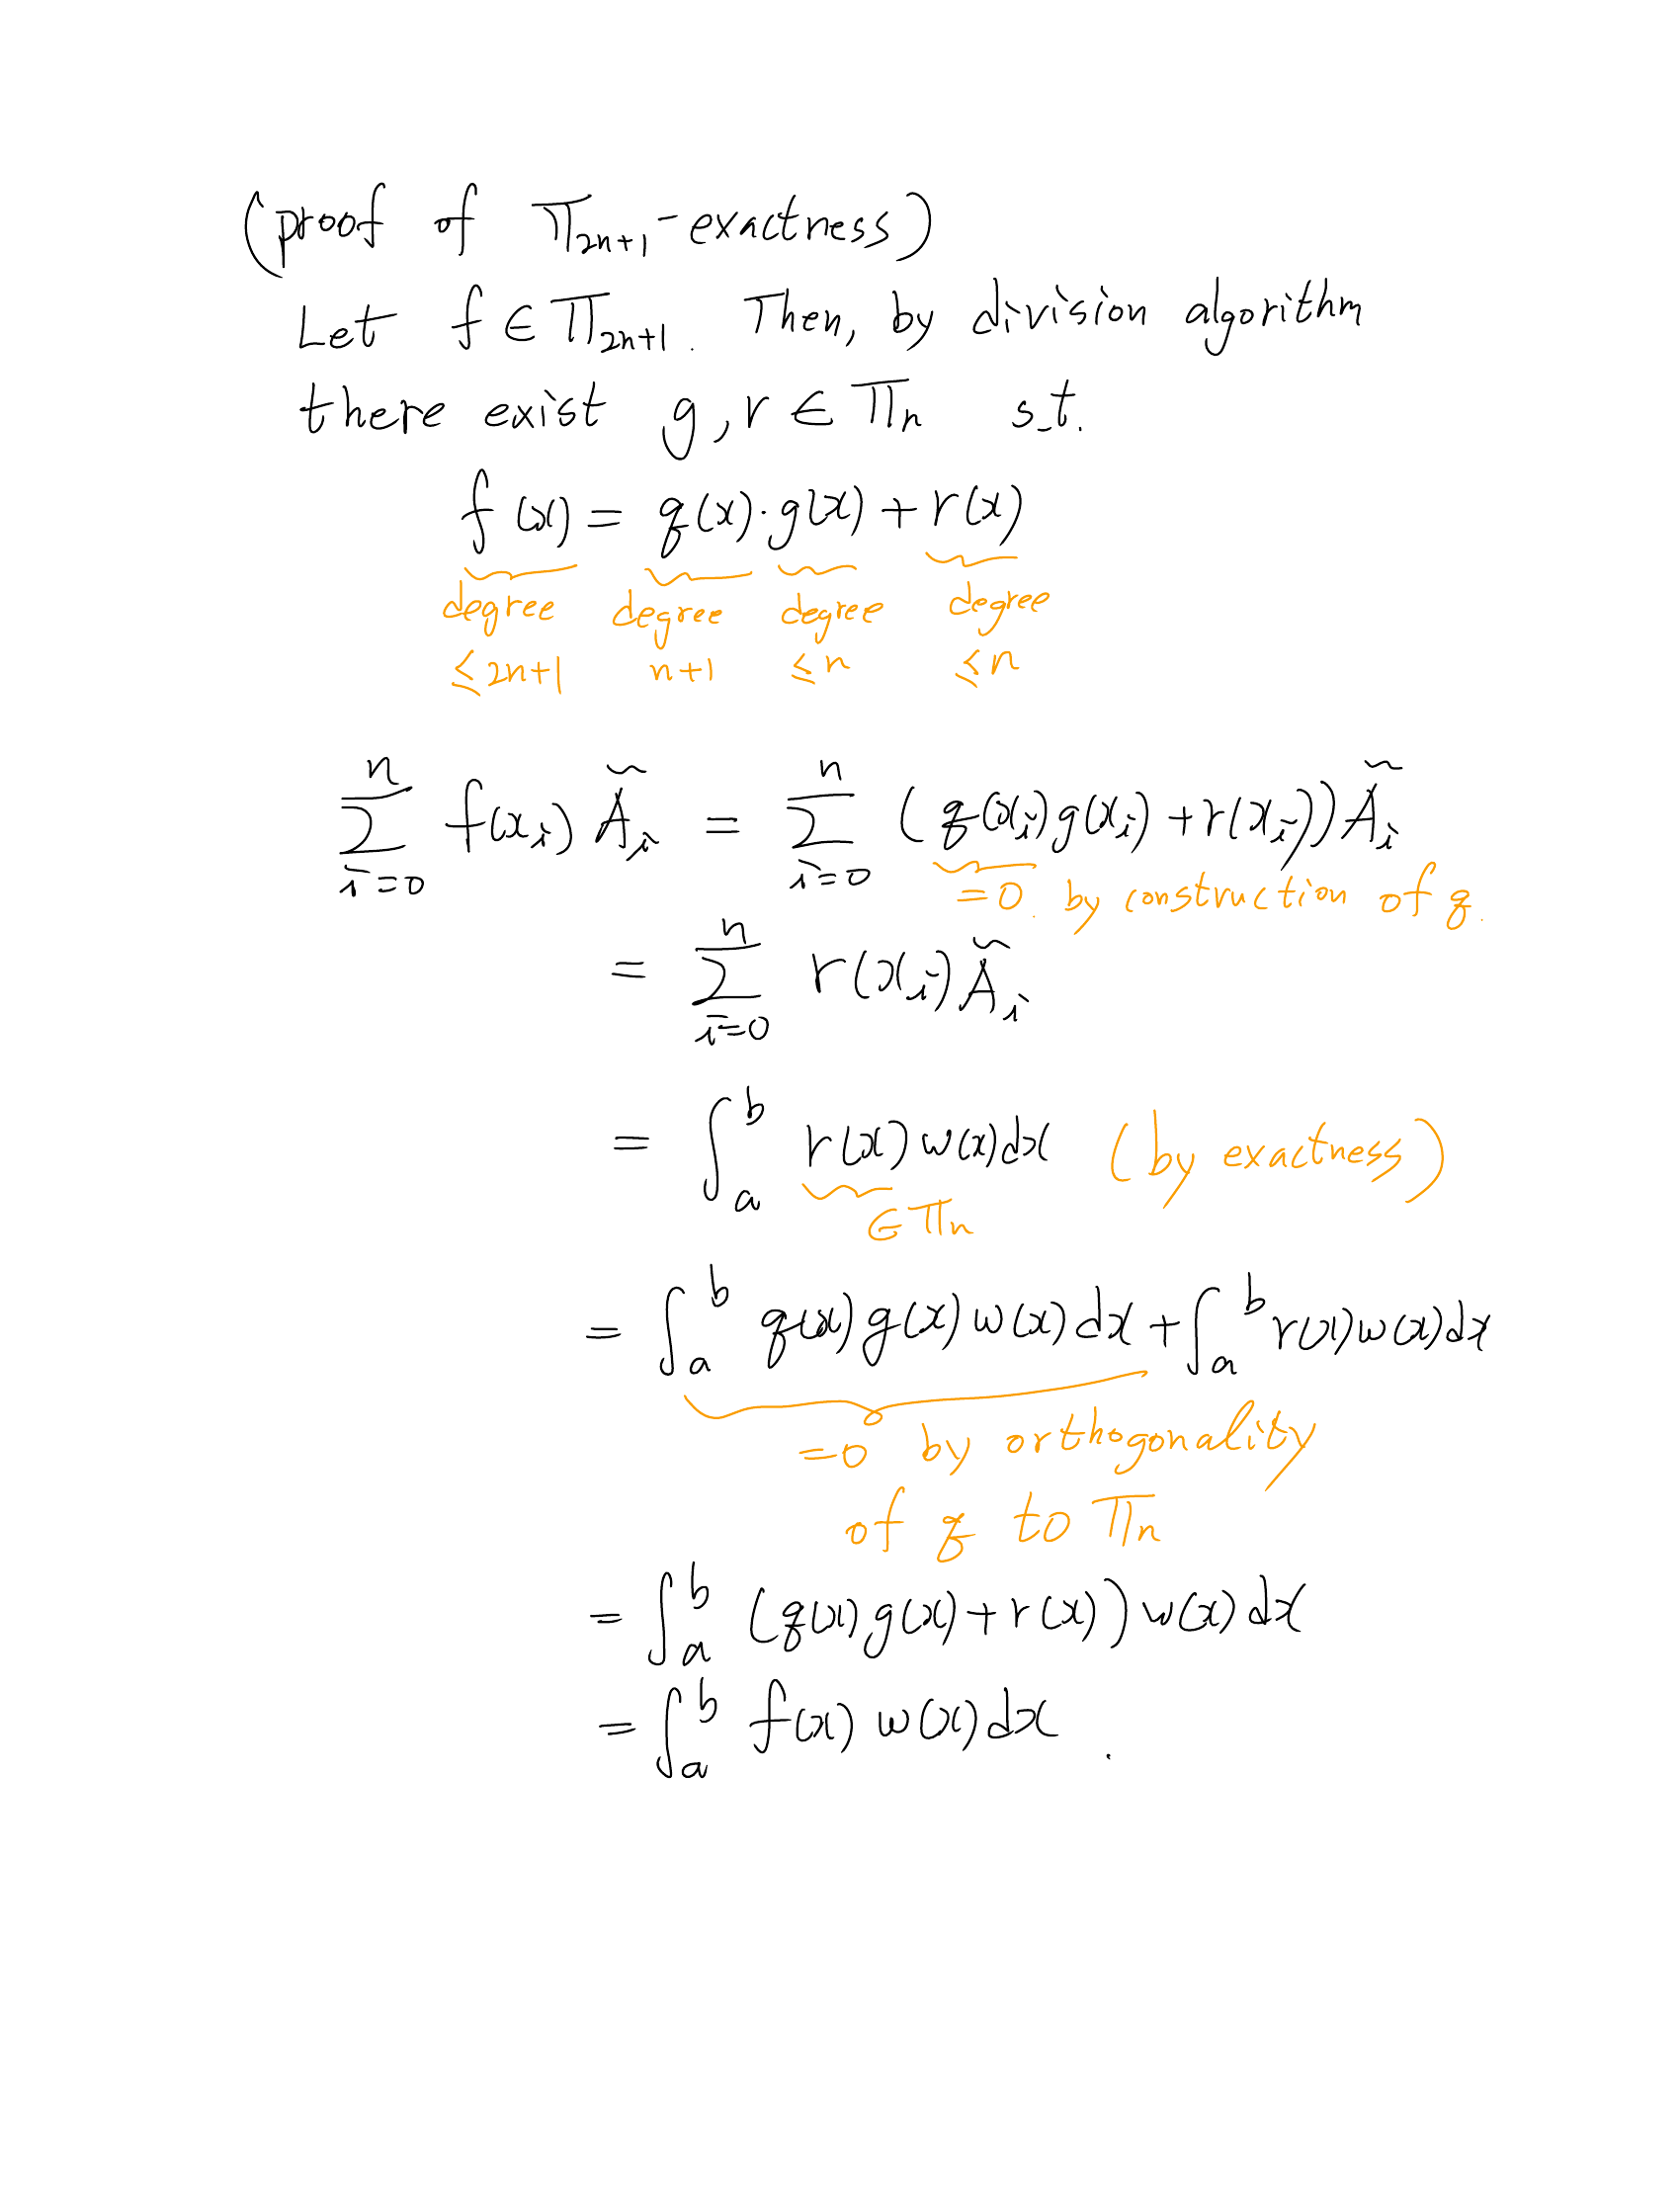 (proof of Π₂ₙ₊₁-exactness)
Let f ∈ Π₂ₙ₊₁. Then, by division algorithm
there exist g, r ∈ Πₙ s.t.
f(x) = q(x)·g(x) + r(x)
degree degree degree degree
≤2n+1 n+1 ≤n ≤n
∑ᵢ₌₀ⁿ f(xᵢ) Ãᵢ = ∑ᵢ₌₀ⁿ (q(xᵢ)g(xᵢ) + r(xᵢ)) Ãᵢ
=0. by construction of q.
= ∑ᵢ₌₀ⁿ r(xᵢ) Ãᵢ
= ∫ₐᵇ r(x) w(x) dx (by exactness)
∈ Πₙ
= ∫ₐᵇ q(x) g(x) w(x) dx + ∫ₐᵇ r(x) w(x) dx
=0 by orthogonality
of q to Πₙ
= ∫ₐᵇ (q(x) g(x) + r(x)) w(x) dx
= ∫ₐᵇ f(x) w(x) dx.